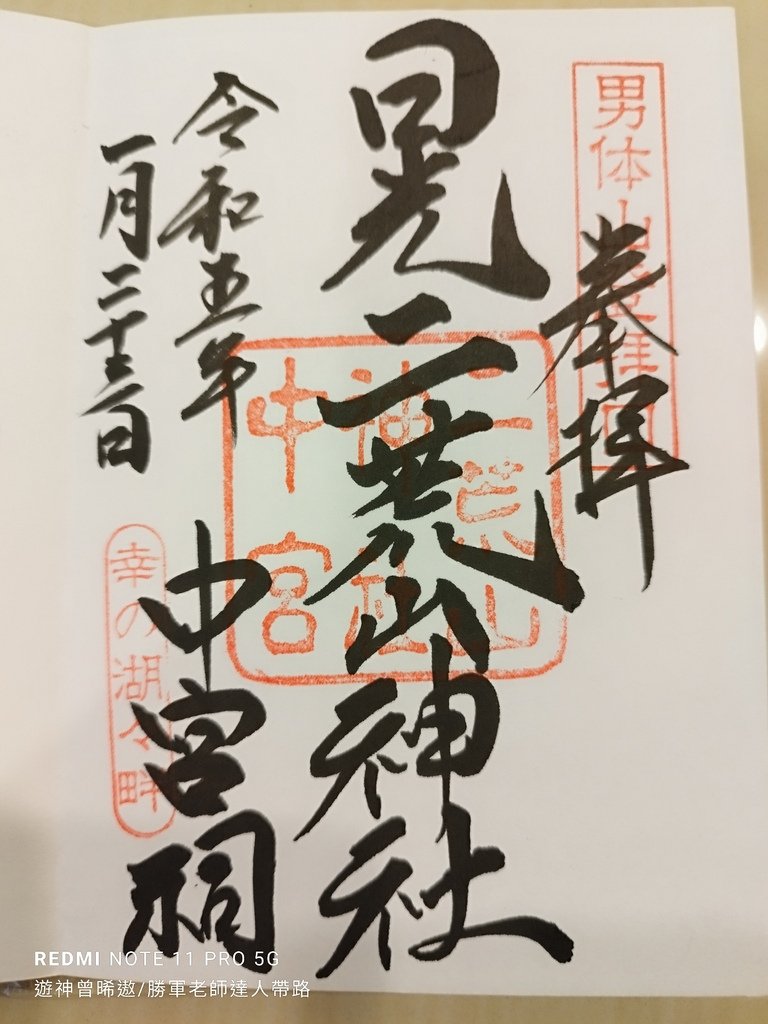 男体山登拝口
奉拝
日光二荒山神社
二荒山
神社
中宮
令和五年
一月二十三日
中宮祠
幸の湖々畔
REDMI NOTE 11 PRO 5G
遊神曾晞遨/勝軍老師達人帶路